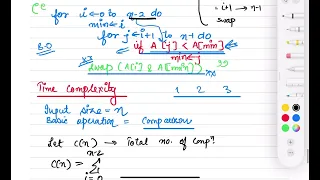 for i ← 0 to n-2 do
min ← i
for j ← i+1 to n-1 do
if A[j] < A[min]
min ← j
swap A[i] & A[min]
i+1 → n-1
swap
Time complexity
1 2 3
Input size = n
Basic operation = Comparison
Let C(n) → Total no. of compⁿ
n-2
C(n) = Σ
i=0